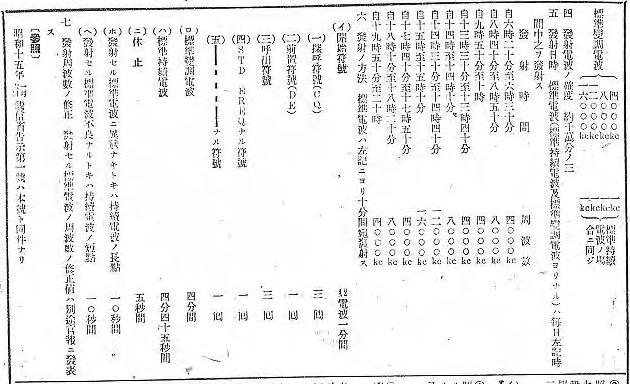 標準變調電波
四〇〇〇kc
八〇〇〇kc
一二〇〇〇kc
一六〇〇〇kc
標準持續電波ノ場合ニ同ジ
四 發射電波ノ確度 約千萬分ノ三
五 發射日時 標準電波(標準持續電波及標準變調電波ヨリナル)ハ每日左記時
間中之ヲ發射ス
發射時間 周波數
自六時二十分至六時三十分 四〇〇〇kc
自八時四十分至八時五十分 八〇〇〇kc
自九時五十分至十時 四〇〇〇kc
自十三時三十分至十三時四十分 四〇〇〇kc
自十四時至十四時十分 八〇〇〇kc
自十四時三十分至十四時四十分 一二〇〇〇kc
自十五時至十五時十分 一六〇〇〇kc
自十七時四十分至十七時五十分 四〇〇〇kc
自十八時五十分至十九時 八〇〇〇kc
自十九時五十分至二十時 四〇〇〇kc
六 發射ノ方法 標準電波ハ左記ニヨリ十分間宛發射ス
(イ)開始符號 電波一分間
(一)探呼符號(CQ) 三囘
(二)前置符號(DE) 一囘
(三)呼出符號 三囘
(四)STD FREQナル符號 一囘
(五)ナル符號 一囘
(ロ)標準變調電波 四分間
(ハ)標準持續電波 四分四十五秒間
(ニ)休止 五秒間
(ホ)發射セル標準電波ニ異狀ナキトキハ持續電波ノ長點 一〇秒間
(ヘ)發射セル標準電波不良ナルトキハ持續電波ノ短點 一〇秒間
七 發射周波數ノ修正 發射セル標準電波ノ周波數ノ修正値ハ別途官報ニ發表
ス
【參照】
昭和十五年一月遞信省吿示第一號ハ本號ト同件ナリ